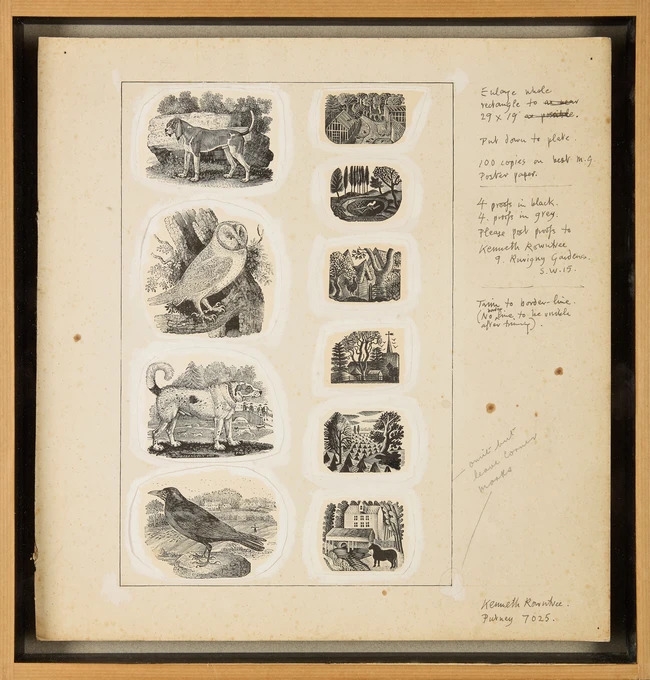 Enlarge whole
rectangle to as near
29 x 19 as possible.
Put down to plate.
100 copies on best M.G
Poster paper.
4 proofs in black.
4. proofs in grey.
Please post proofs to
Kenneth Rowntree
9. Ruvigny Gardens.
S.W.15.
Trim to border-line.
(No line, to be visible
after trimming).
omit but
leave corner
marks
Kenneth Rowntree.
Putney 7025.